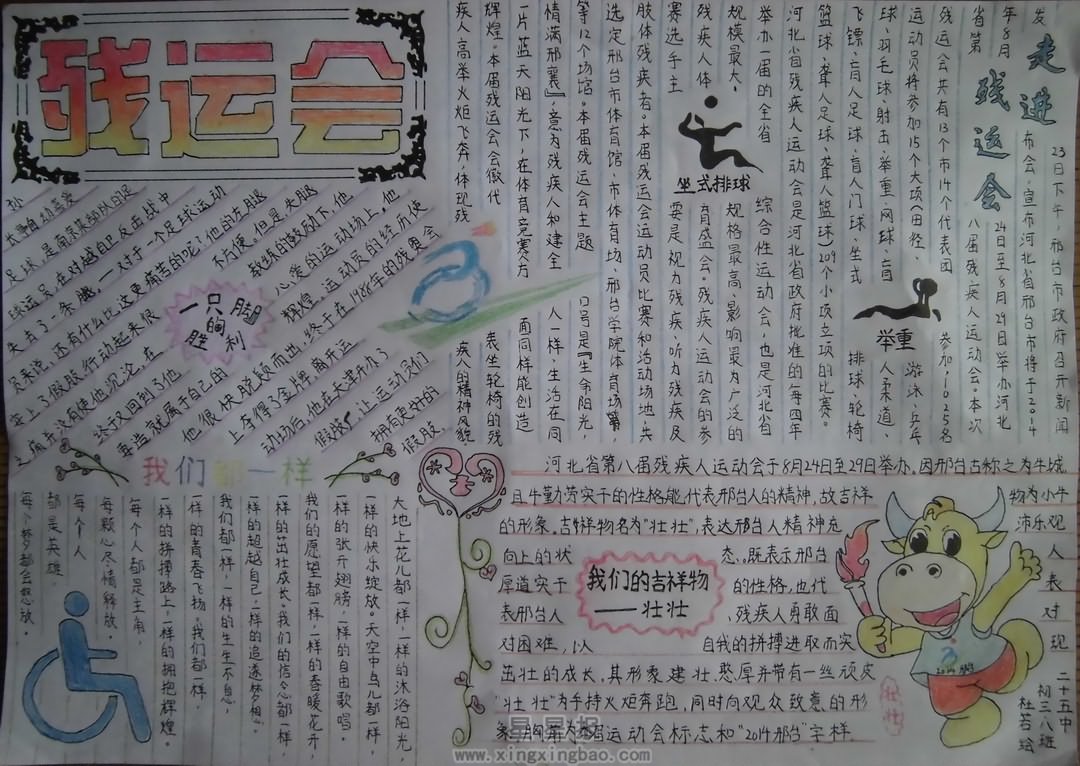 残运会
走进残运会
23日下午，邢台市政府召开新闻
发布会，宣布河北省邢台市将于2014
年8月24日至8月29日举办河北
省第八届残疾人运动会。本次
残运会共有13个市14个代表团
参加1025名
运动员将参加15个大项(田径、
游泳、乒乓
球、羽毛球、射击、举重、网球、盲
人柔道、
飞镖、盲人足球、盲人门球、坐式
排球、轮椅
篮球、聋人足球、聋人篮球)209个小项立项的比赛。
河北省残疾人运动会是河北省政府批准的每四年
举办一届的全省
综合性运动会，也是河北省
规模最大、
规格最高、影响最为广泛的
残疾人体
育盛会。残疾人运动会的参
赛选手主
要是视力残疾、听力残疾及
肢体残疾者。本届残运会运动员比赛和活动场地，共
选定邢台市体育馆、市体育场、邢台学院体育场等，
等12个场馆。本届残运会主题
口号是『生命阳光，
情满邢襄』，意为残疾人和健全
人一样，生活在同
一片蓝天阳光下，在体育竞赛方
面同样能创造
辉煌。本届残运会会徽代
表坐轮椅的残
疾人高举火炬飞奔，体现残
疾人的精神风貌
坐式排球
举重
一只脚
的胸
胜利
足球，是南京某部队的足
球运员，在对越自卫反击战中
失去了一条腿。一对于一个足球运动
员来说，还有什么比这更痛苦的呢？他的左腿
安上了假肢，行动起来很
不方便。但是，失腿
之痛并没有使他沉沦，在
教练的鼓励下，他
终于又回到了他
心爱的运动场上，他
再造就属于自己的
辉煌。运动员的经历使
他很快脱颖而出，终于在1984年的残奥会
上夺得了金牌，离开运
动场后，他在天津开办了
假肢厂，让运动员们
拥有更好的
假肢。
我们都一样
大地上花儿都一样，一样的沐浴阳光，
一样的快乐绽放。天空中鸟儿都一样，
一样的张开翅膀，一样的自由歌唱。
我们的愿望都一样，一样的春暖花开，
一样的茁壮成长。我们的信念都一样，
一样的超越自己，一样的追逐梦想。
我们都一样，一样的生生不息，
一样的青春飞扬，我们都一样，
一样的拼搏路上，一样的拥抱辉煌。
每个人都是主角，
每颗心尽情释放。
每个人
都是英雄。
每个梦都会怒放。
河北省第八届残疾人运动会于8月24日至29日举办，因邢台古称之为牛城
且牛勤劳实干的性格能代表邢台人的精神，故吉祥物为小牛
的形象。吉祥物名为“壮壮”，表达邢台人精神充沛乐观
向上的状态，既表示邢台人
厚道实干的性格，也代表
表邢台人、残疾人勇敢面对
对困难，以自我的拼搏进取而实现
茁壮的成长，其形象建壮、憨厚并带有一丝顽皮
“壮壮”为手持火炬奔跑，同时向观众致意的形
象，胸第为本届运动会标志和“2014邢台”字样
我们的吉祥物
——壮壮
壮壮
二十五中
初三八班
杜若绘
星星报
www.xingxingbao.com